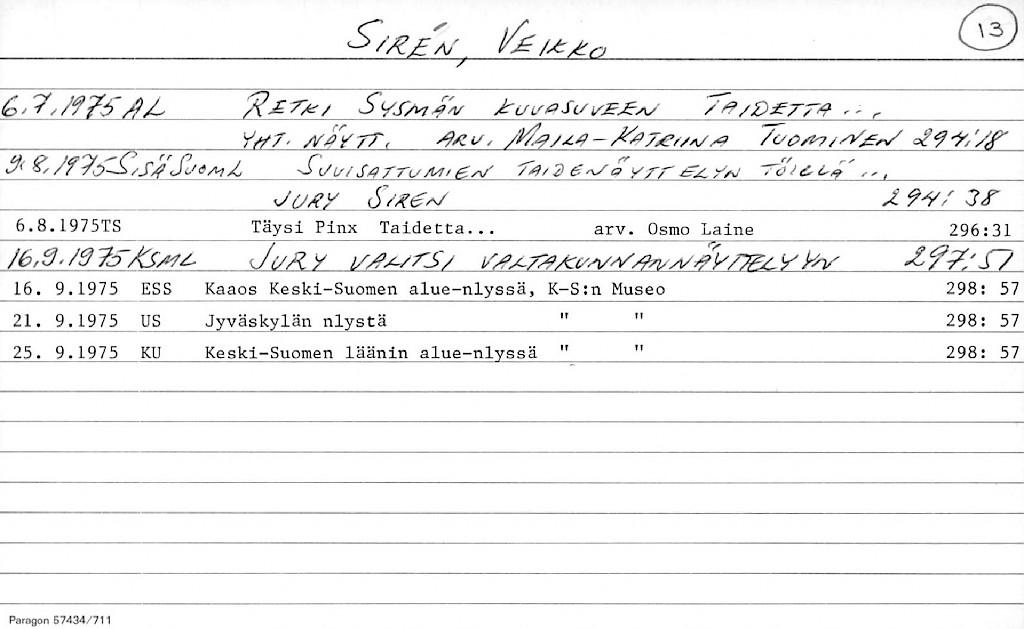 SIRÉN, VEIKKO 13
6.7.1975 AL RETKI SYSMÄN KUVASUVEEN TAIDETTA...
YHT. NÄYTT. ARV. MAILA-KATRIINA TUOMINEN 294:18
9.8.1975 SISÄSUOML SUVISATTUMIEN TAIDENÄYTTELYN TÖILLÄ...
JURY SIREN 294: 38
6.8.1975TS Täysi Pinx Taidetta... arv. Osmo Laine 296:31
16.9.1975 KSML JURY VALITSI VALTAKUNNANNÄYTTELYYN 297:51
16. 9.1975 ESS Kaaos Keski-Suomen alue-nlyssä, K-S:n Museo 298: 57
21. 9.1975 US Jyväskylän nlystä " " 298: 57
25. 9.1975 KU Keski-Suomen läänin alue-nlyssä " " 298: 57
Paragon 57434/711